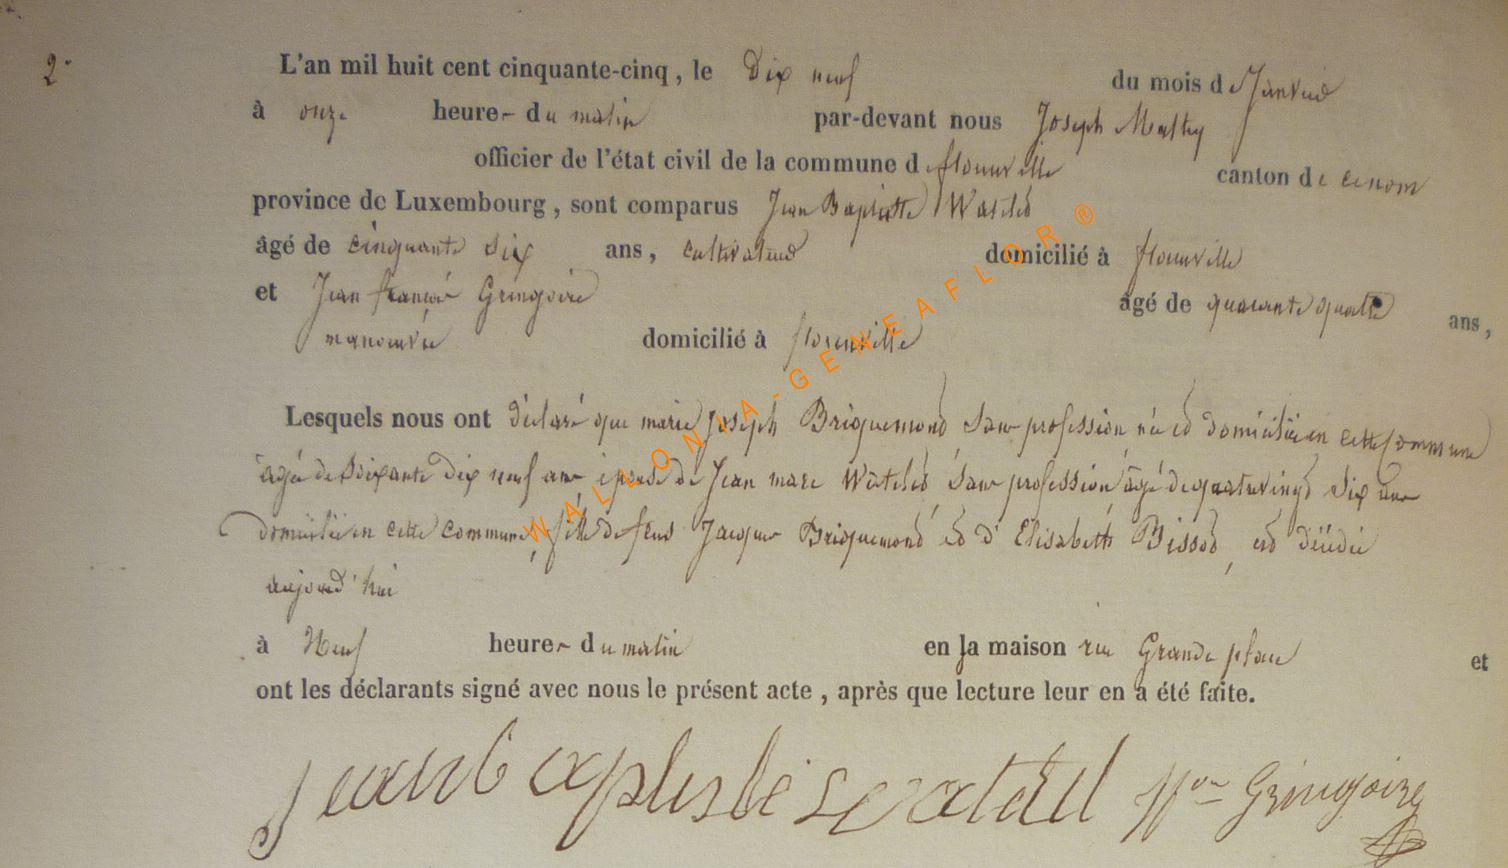 2.
L'an mil huit cent cinquante-cinq, le Dix neuf du mois de Janvier
à onze heures du matin par-devant nous Joseph Mathy
officier de l'état civil de la commune de florenville canton de ce nom
province de Luxembourg, sont comparus Jean Baptiste Watelet
âgé de cinquante six ans, cultivateur domicilié à florenville
et Jean françois Gringoire âgé de quarante quatre ans,
manouvrier domicilié à florenville
Lesquels nous ont déclaré que marie Joseph Briquemond Sans profession née et domiciliée en cette Commune
agée de Soixante dix neuf ans épouse de Jean marc Watelet Sans profession âgé de quatrevingt Six ans
domicilié en cette commune, fille de feus Jacques Briquemond et d' Elisabeth Bissot, est décédée
aujourd'hui
à Neuf heures du matin en la maison rue Grande place et
ont les déclarants signé avec nous le présent acte, après que lecture leur en a été faite.
jean baptiste watelet Gringoire
WALLONIA-GENEAFLOR®